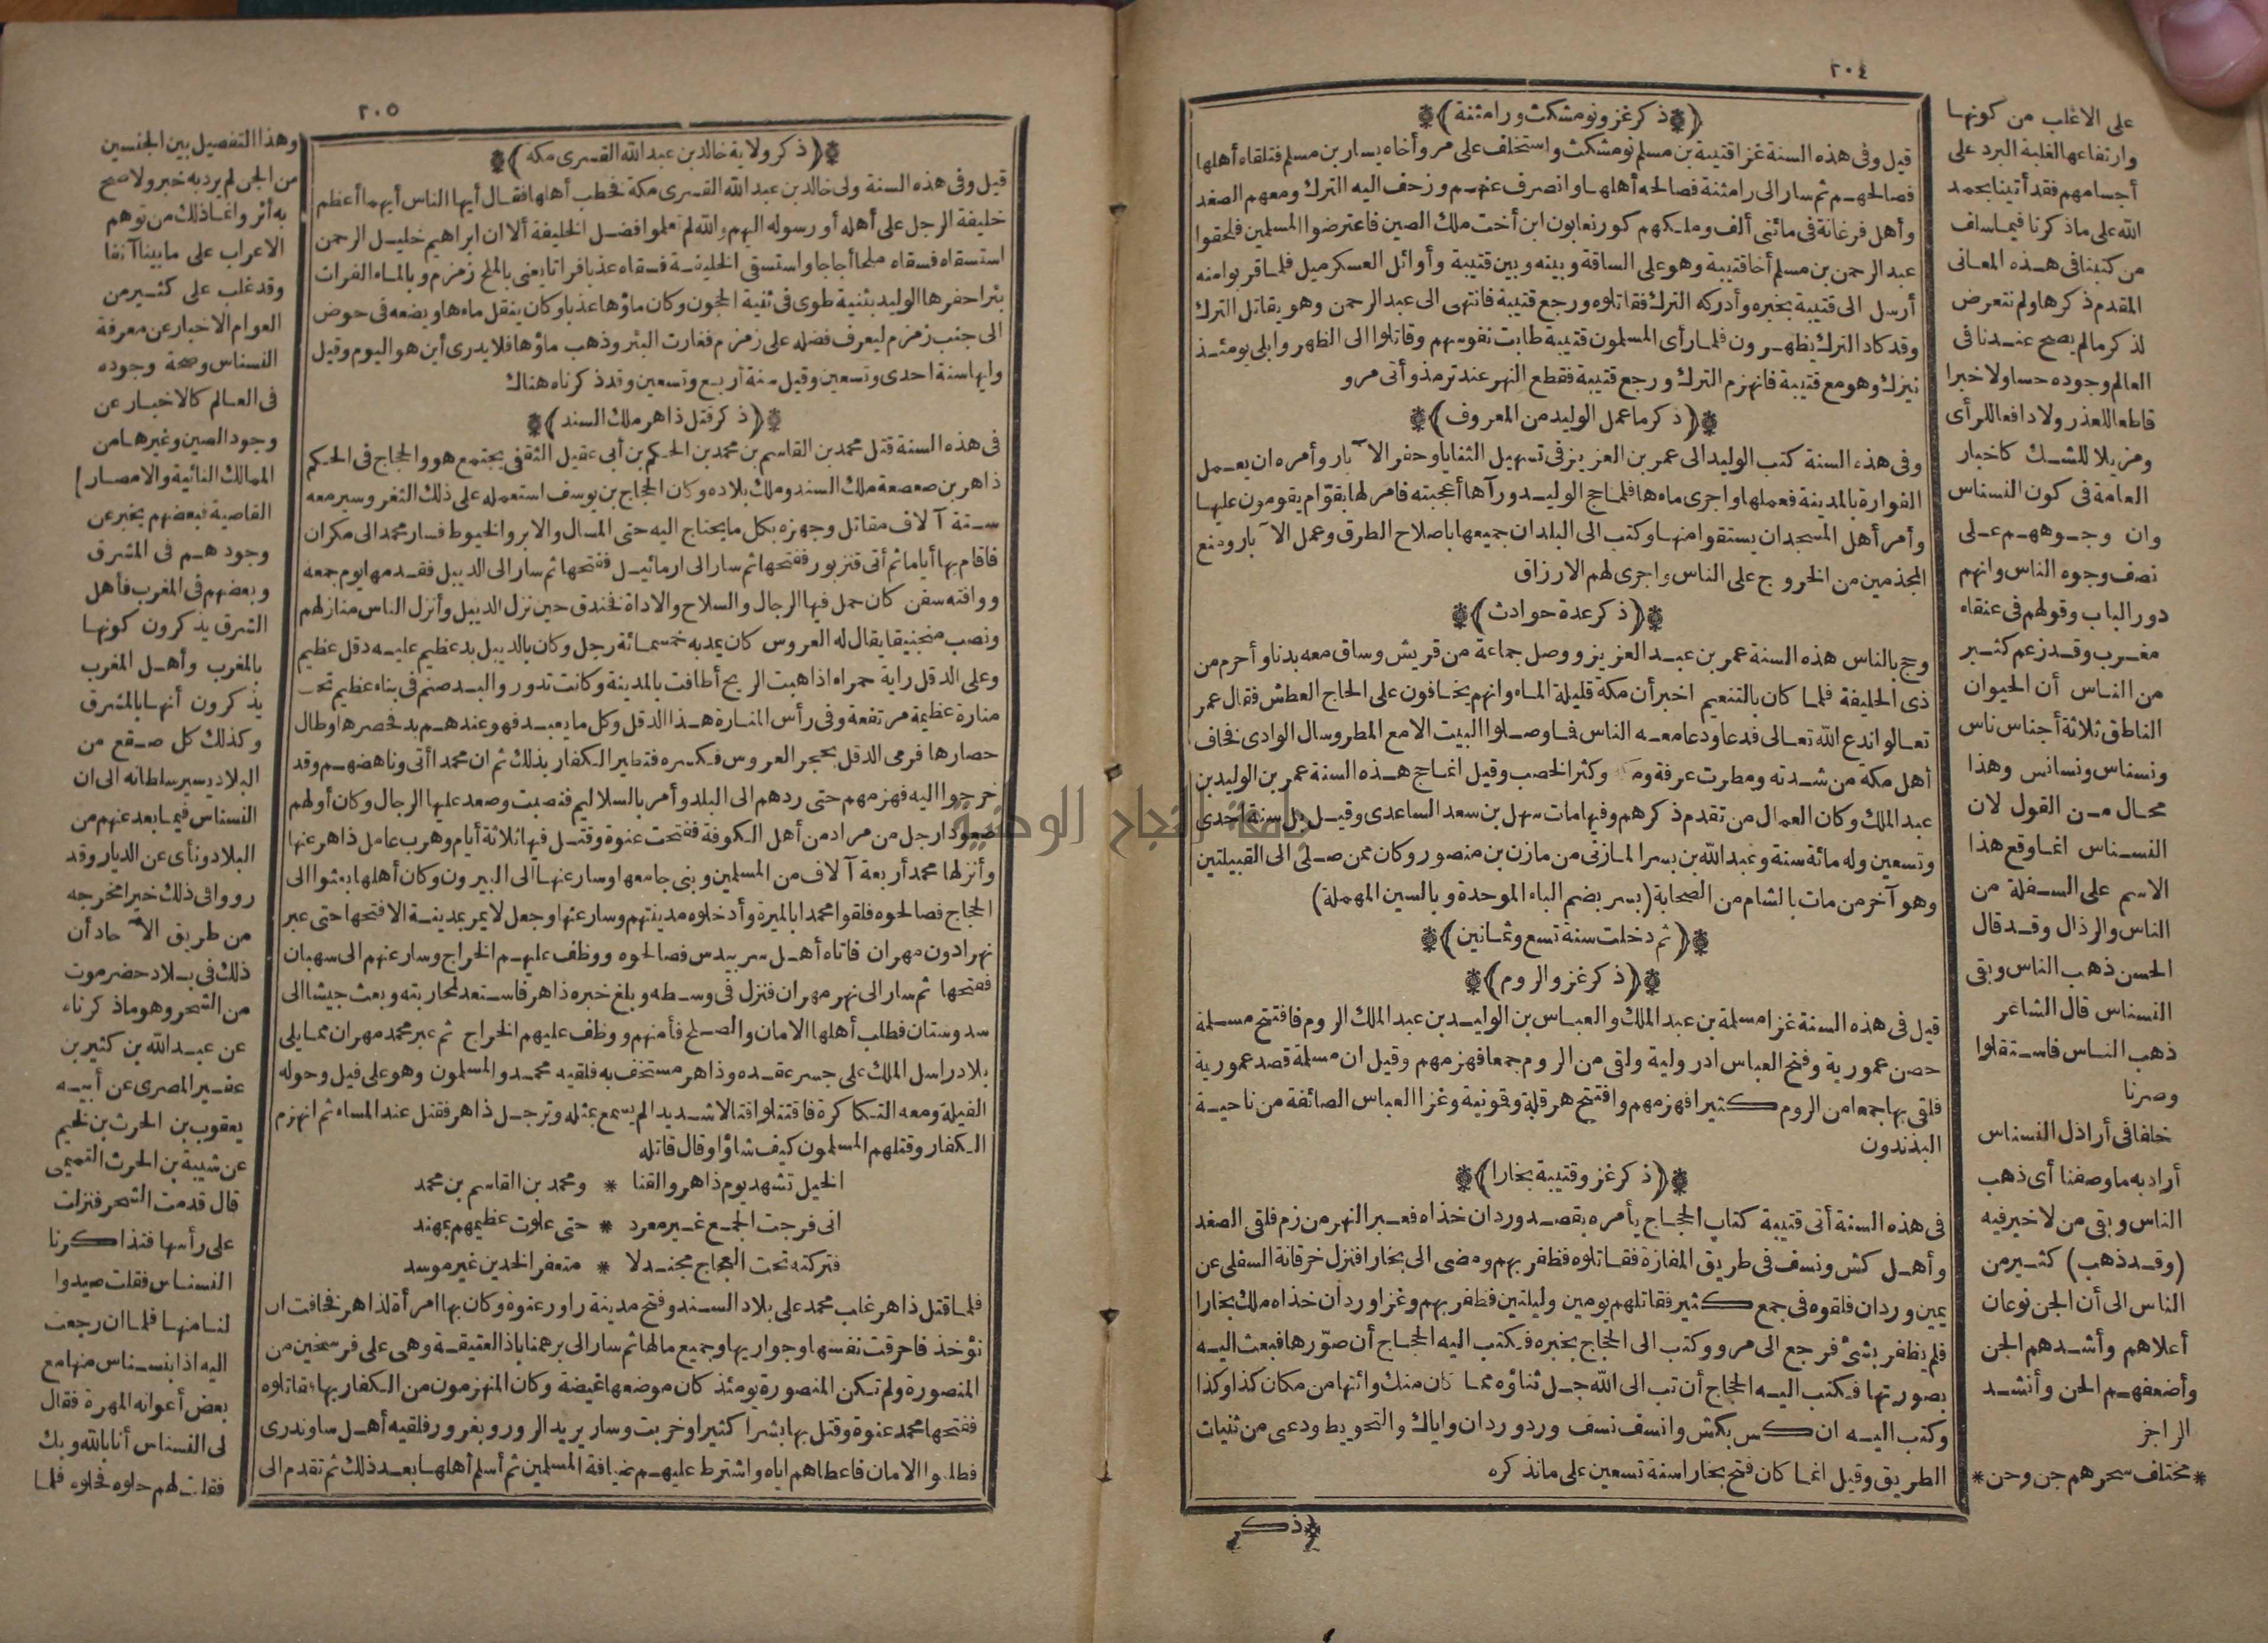 ٢٠٤
﴿ذكر غزو نومشكث ورامثنة﴾
قيل وفى هذه السنة غزا قتيبة بن مسلم نومشكث واستخلف على مرو أخاه يسار بن مسلم فتلقاه أهلها
فصالحهم ثم سار الى رامثنة فصالحه أهلها وانصرف عنهم وزحف اليه الترك ومعهم الصغد
وأهل فرغانة فى مائتى ألف وملكهم كورنعابون ابن أخت ملك الصين فاعترضوا المسلمين فلحقوا
عبد الرحمن بن مسلم أخا قتيبة وهو على الساقة وبينه وبين قتيبة وأوائل العسكر ميل فلما قربوا منه
أرسل الى قتيبة بخبره وأدركه الترك فقاتلوه ورجع قتيبة فانتهى الى عبد الرحمن وهو يقاتل الترك
وقد كاد الترك يظهرون فلما رأى المسلمون قتيبة طابت نفوسهم وقاتلوا الى الظهر وابلى يومئذ
نيزك وهو مع قتيبة فانهزم الترك ورجع قتيبة فقطع النهر عند ترمذ وأتى مرو
﴿ذكر ما عمل الوليد من المعروف﴾
وفى هذه السنة كتب الوليد الى عمر بن العزيز فى تسهيل الثنايا وحفر الآبار وأمره ان يعمل
الفوارة بالمدينة فعملها واجرى ماءها فلما حج الوليد ورآها أعجبته فامر لها بقوّام يقومون عليها
وأمر أهل المسجد ان يستقوا منها وكتب الى البلدان جميعها باصلاح الطرق وعمل الآبار ومنع
المجذمين من الخروج على الناس واجرى لهم الارزاق
﴿ذكر عدة حوادث﴾
وحج بالناس هذه السنة عمر بن عبد العزيز ووصل جماعة من قريش وساق معه بدنا وأحرم من
ذى الحليفة فلما كان بالتنعيم اخبر أن مكة قليلة الماء وانهم يخافون على الحاج العطش فقال عمر
تعالوا ندع الله تعالى فدعا ودعا معه الناس فما وصلوا البيت الا مع المطر وسال الوادى فخاف
أهل مكة من شدته ومطرت عرفة ومكة وكثر الخصب وقيل انما حج هذه السنة عمر بن الوليد بن
عبد الملك وكان العمال من تقدم ذكرهم وفيها مات سهل بن سعد الساعدى وقيل بل سنة احدى
وتسعين وله مائة سنة وعبد الله بن بسر المازنى من مازن بن منصور وكان ممن صلى الى القبيلتين
وهو آخر من مات بالشام من الصحابة (بسر بضم الباء الموحدة وبالسين المهملة)
﴿ثم دخلت سنة تسع وثمانين﴾
﴿ذكر غزو الروم﴾
قيل فى هذه السنة غزا مسلمة بن عبد الملك والعباس بن الوليد بن عبد الملك الروم فافتتح مسلمة
حصن عمورية وفتح العباس ادرولية ولقى من الروم جمعا فهزمهم وقيل ان مسلمة قصد عمورية
فلقى بها جمعا من الروم كثيرا فهزمهم وافتتح هرقلة وقونية وغزا العباس الصائفة من ناحية
البذندون
﴿ذكر غزو قتيبة بخارا﴾
فى هذه السنة أتى قتيبة كتاب الحجاج يأمره بقصد وردان خذاه فعبر النهر من زم فلقى الصغد
وأهل كش ونسف فى طريق المفازة فقاتلوه فظفر بهم ومضى الى بخارا فنزل خرقانة السفلى عن
يمين وردان فلقوه فى جمع كثير فقاتلهم يومين وليلتين فظفر بهم وغزا وردان خذاه ملك بخارا
فلم يظفر بشئ فرجع الى مرو وكتب الى الحجاج بخبره فكتب اليه الحجاج أن صوّرها فبعث اليه
بصورتها فكتب اليه الحجاج أن تب الى الله جل ثناؤه مما كان منك وائتها من مكان كذا وكذا
وكتب اليه ان كس بكش وانسف نسف وردوردان واياك والتحويط ودعى من ثنيات
الطريق وقيل انما كان فتح بخارا سنة تسعين على ما نذكره
﴿ذكر
على الاغلب من كونها
وارتفاعها لغلبة البرد على
أجسامهم فقد أتينا بحمد
الله على ما ذكرنا فيما سلف
من كتبنا فى هذه المعانى
المقدم ذكرها ولم نتعرض
لذكر ما لم يصح عندنا فى
العالم وجوده حسا ولا خبرا
قاطعا للعذر ولا دافعا للرأى
ومزيلا للشك كاخبار
العامة فى كون النسناس
وان وجوههم على
نصف وجوه الناس وانهم
دور الباب وقولهم فى عنقاء
مغرب وقد زعم كثير
من الناس أن الحيوان
الناطق ثلاثة أجناس ناس
ونسناس ونسانس وهذا
محال من القول لان
النسناس انما وقع هذا
الاسم على السفلة من
الناس والرذال وقد قال
الحسن ذهب الناس وبقى
النسناس قال الشاعر
ذهب الناس فاستقلوا
وصرنا
خلفا فى أراذل النسناس
أراد به ما وصفنا أى ذهب
الناس وبقى من لا خير فيه
(وقد ذهب) كثير من
الناس الى أن الجن نوعان
أعلاهم وأشدهم الجن
وأضعفهم الحن وأنشد
الراجز
* مختلف سحرهم جن وحن *
٢٠٥
﴿ذكر ولاية خالد بن عبد الله القسرى مكة﴾
قيل وفى هذه السنة ولى خالد بن عبد الله القسرى مكة فخطب أهلها فقال أيها الناس أيهما أعظم
خليفة الرجل على أهله أو رسوله اليهم والله لم تعلموا فضل الخليفة ألا ان ابراهيم خليل الرحمن
استسقاه فسقاه ملحا أجاجا واستسقى الخليفة فسقاه عذبا فراتا يعنى بالملح زمزم وبالماء الفرات
بئرا حفرها الوليد بثنية طوى فى ثنية الحجون وكان ماؤها عذبا وكان ينقل ماءها ويضعه فى حوض
الى جنب زمزم ليعرف فضله على زمزم فغارت البئر وذهب ماؤها فلا يدرى أين هو اليوم وقيل
وليها سنة احدى وتسعين وقيل سنة أربع وتسعين وقد ذكرناه هناك
﴿ذكر قتل ذاهر ملك السند﴾
فى هذه السنة قتل محمد بن القاسم بن محمد بن الحكم بن أبى عقيل الثقفى يجتمع هو والحجاج فى الحكم
ذاهر بن صعصعة ملك السند وملك بلاده وكان الحجاج بن يوسف استعمله على ذلك الثغر وسير معه
ستة آلاف مقاتل وجهزه بكل ما يحتاج اليه حتى المسال والابر والخيوط فسار محمد الى مكران
فاقام بها أياما ثم أتى قنزبور ففتحها ثم سار الى ارمائيل ففتحها ثم سار الى الديبل فقدمها يوم جمعة
ووافته سفن كان حمل فيها الرجال والسلاح والاداة فخندق حين نزل الديبل وأنزل الناس منازلهم
ونصب منجنيقا يقال له العروس كان يمد به خمسمائة رجل وكان بالديبل بد عظيم عليه دقل عظيم
وعلى الدقل راية حمراء اذا هبت الريح أطافت بالمدينة وكانت تدور والبد صنم فى بناء عظيم تحت
منارة عظيمة مرتفعة وفى رأس المنارة هذا الدقل وكل ما يعبد فهو عندهم بد فحصرها وطال
حصارها فرمى الدقل بحجر العروس فكسره فتطير الكفار بذلك ثم ان محمدا أتى وناهضهم وقد
خرجوا اليه فهزمهم حتى ردهم الى البلد وأمر بالسلاليم فنصبت وصعد عليها الرجال وكان أولهم
صعودا رجل من مراد من أهل الكوفة ففتحت عنوة وقتل فيها ثلاثة أيام وهرب عامل ذاهر عنها
وأنزلها محمد أربعة آلاف من المسلمين وبنى جامعها وسار عنها الى البيرون وكان أهلها بعثوا الى
الحجاج فصالحوه فلقوا محمدا بالميرة وأدخلوه مدينتهم وسار عنها وجعل لا يمر بمدينة الا فتحها حتى عبر
نهرا دون مهران فاتاه أهل سربيدس فصالحوه ووظف عليهم الخراج وسار عنهم الى سهبان
ففتحها ثم سار الى نهر مهران فنزل فى وسطه وبلغ خبره ذاهر فاستعد لمحاربته وبعث جيشا الى
سدوستان فطلب أهلها الامان والصلح فأمنهم ووظف عليهم الخراج ثم عبر محمد مهران مما يلى
بلاد راسل الملك على جسر عقده وذاهر مستخف به فلقيه محمد والمسلمون وهو على فيل وحوله
الفيلة ومعه التكاكرة فاقتتلوا قتالا شديدا لم يسمع بمثله وترجل ذاهر فقتل عند المساء ثم انهزم
الكفار وقتلهم المسلمون كيف شاؤا وقال قاتله
الخيل تشهد يوم ذاهر والقنا * ومحمد بن القاسم بن محمد
انى فرجت الجمع غير معرد * حتى علوت عظيمهم بمهند
فتركته تحت العجاج مجندلا * متعفر الخدين غير موسد
فلما قتل ذاهر غلب محمد على بلاد السند وفتح مدينة راور عنوة وكان بها امرأة لذاهر فخافت ان
تؤخذ فاحرقت نفسها وجواريها وجميع مالها ثم سار الى برهمناباذ العتيقة وهى على فرسخين من
المنصورة ولم تكن المنصورة يومئذ كان موضعها غيضة وكان المنهزمون من الكفار بها فقاتلوه
ففتحها محمد عنوة وقتل بها بشرا كثيرا وخربت وسار يريد الرور وبغرور فلقيه أهل ساوندرى
فطلبوا الامان فاعطاهم اياه واشترط عليهم ضيافة المسلمين ثم أسلم أهلها بعد ذلك ثم تقدم الى
وهذا التفصيل بين الجنسين
من الجن لم يرد به خبر ولا صح
به أثر وانما ذلك من توهم
الاعراب على ما بينا آنفا
وقد غلب على كثير من
العوام الاخبار عن معرفة
النسناس وصحة وجوده
فى العالم كالاخبار عن
وجود الصين وغيرها من
الممالك النائية والامصار)
القاصية فبعضهم يخبر عن
وجودهم فى المشرق
وبعضهم فى المغرب فأهل
الشرق يذكرون كونها
بالمغرب وأهل المغرب
يذكرون أنها بالمشرق
وكذلك كل صقع من
البلاد يسير سلطانه الى ان
النسناس فيما بعد عنهم من
البلاد ونأى عن الديار وقد
رووا فى ذلك خبرا مخرجه
من طريق الآحاد أن
ذلك فى بلاد حضرموت
من الشحر وهو ما ذكرناه
عن عبد الله بن كثير بن
عفير المصرى عن أبيه
يعقوب بن الحرث بن نحيم
عن شبيبة بن الحرث التميمى
قال قدمت الشحر فنزلت
على رأسها فتذاكرنا
النسناس فقلت صيدوا
لنا منها فلما ان رجعت
اليه اذا بنسناس منها مع
بعض أعوانه المهرة فقال
لى النسناس أنا بالله وبك
فقلت لهم خلوه فخلوه فلما
جامعة النجاح الوطنية